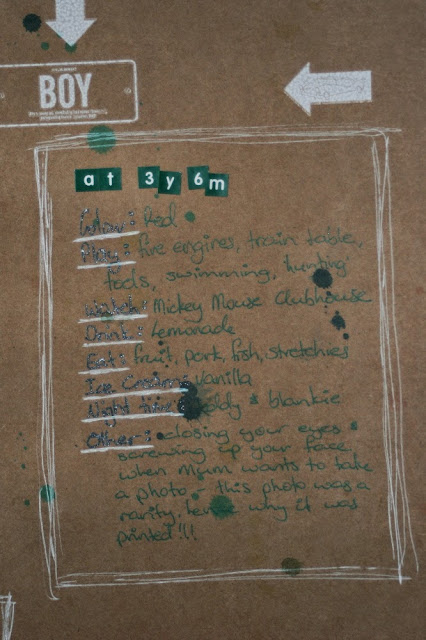 BOY
at 3y 6m
Colour: Red
Play: fire engines, train table,
tools, swimming, 'hunting'
Watch: Mickey Mouse Clubhouse
Drink: Lemonade
Eat: fruit, pork, fish,
Ice Cream: vanilla
Night time: & blankie
Other: closing your eyes &
screwing up your face
when Mum wants to take
a photo - this photo was a
rarity, hence why it was
printed!!!